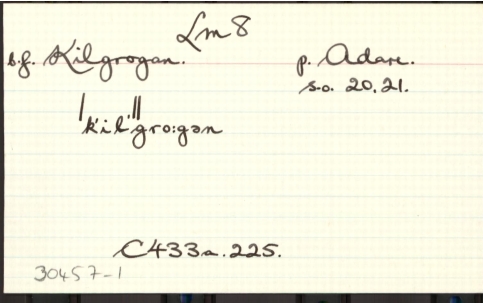 Lm 8
s.f. Kilgrogan. p. Adare.
s.o. 20.21.
ˈk'il'ˈˈgro:gən
C433a.225.
30457-1